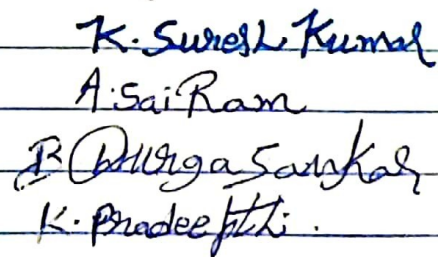 K. Suresh Kumar
A. Sai Ram
B Durga Sankar
K. Pradeepthi.